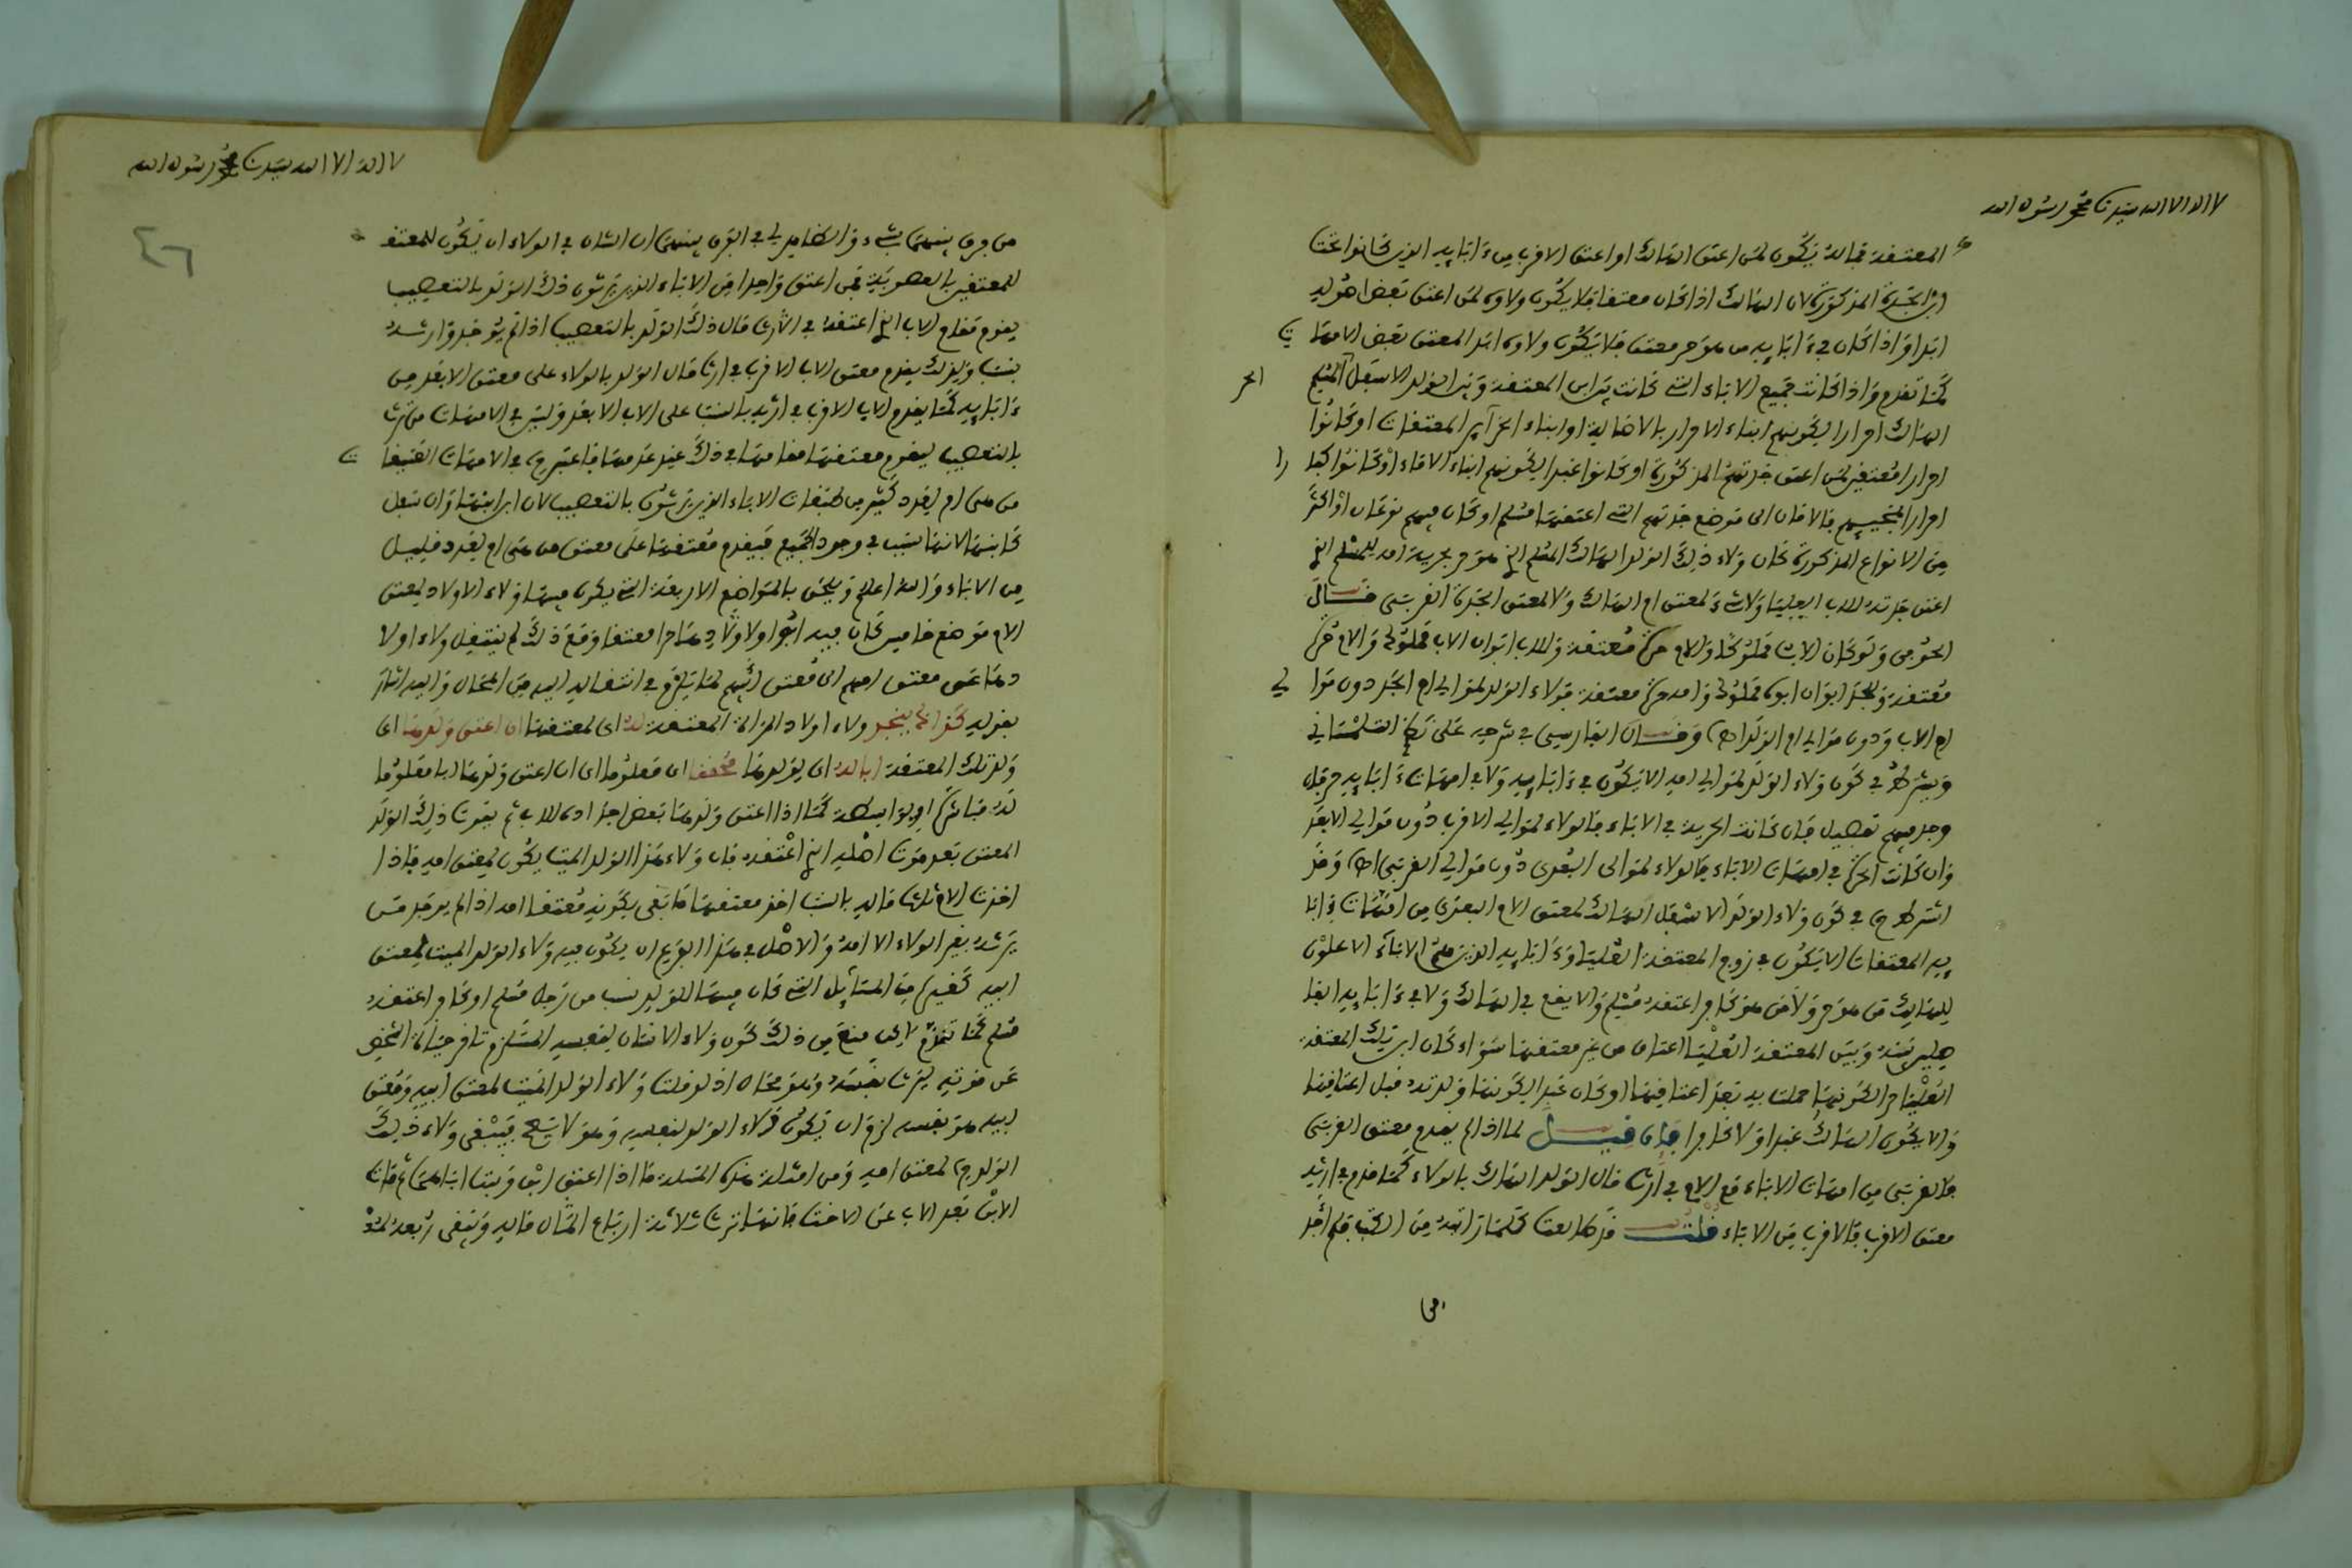 لا اله الا الله سيدنا محمد رسول الله
المعتقة فماله يكون لمن اعتق الهالك او اعتق الاقرب من ءابايه الذين كانوا تحت
ابن الجدة المذكورة لان الهالك اذا كان معتقا فلا يكون ولاوه لمن اعتق بعض اصوله
ابدا واذا كان في ءابايه من هو حر معتق فلا يكون ولاوه ابدا لمعتق بعض الامهات
كما تقدم واذا كانت جميع الاباء التي كانت بين ابن المعتقة وبين الولد الاسفل المسلم الحر
الهالك احرارا لكونهم ابناء الاحرار بالاصالة او ابناء الحراير المعتقات او كانوا
احرارا معتقين لمن اعتق جدتهم المذكورة او كانوا عبيدا لكونهم ابناء الاماء او كانوا كفارا
احرارا لمجيبهم بالامان الى موضع جدتهم التي اعتقها مسلم او كان فيهم نوعان او اكثر
من الانواع المذكورة كان ولاء ذلك الولد الهالك المسلم الذي هو حر بحرية امه للمسلم الذي
اعتق جدته للاب العليا ولا شيء لمعتق ام الهالك ولا لمعتق الجدة القربى قال
الحوفي ولو كان الاب مملوكا والام حرة معتقة وللاب ابوان الاب مملوك والام حرة
معتقة وللجد ابوان ابوه مملوك وامه حرة معتقة فولاء الولد لموالي ام الجد دون موالي
ام الاب ودون موالي ام الولد اه وقال الفارسي في شرحه على نظم التلمساني
ويشترط في كون ولاء الولد لموالي امه الا يكون في ءابايه ولا في امهات ءابايه حر فان
وجد فيهم تفصيل فان كانت الحرية في الاباء فالولاء لموالي الاقرب دون موالي الابعد
وان كانت الحرة في امهات الاباء فالولاء لموالى البعدى دون موالي القربى اه وقد
اشترط في كون ولاء الولد الاسفل الهالك لمعتق الام البعدى من امهات ءابا
يه المعتقات الا يكون في زوج المعتقة العليا وءابايه الذين هم الاباء الاعلون
للهالك من هو حر ولا من هو كافر اعتقه مسلم والا يقع في الهالك ولا في ءابايه الفا
صلين بينه وبين المعتقة العليا اعتاق من غير معتقها سواء كان ابن تلك المعتقة
العليا حرا لكونها حملت به بعد اعتاقها او كان عبدا لكونها ولدته قبل اعتاقها
والا يكون الهالك عبدا ولا كافرا فان قيل لما اذا لم يقدم معتق القربى
فالقربى من امهات الاباء مع الام في ارث مال الولد الهالك بالولاء كما قدم في ارثه
معتق الاقرب فالاقرب من الاباء قلت قد طالعت كلما رايته من الكتب فلم اجد
لا اله الا الله سيدنا محمد رسول الله
٤٦
من فرق بينهما بشيء والظاهر لي في الفرق بينهما ان الشان في الولاء ان يكون للمعتق
للمعتقين بالعصوبة فمن اعتق واحدا من الاباء الذين يرثون ذلك الولد بالتعصيب
يقوم مقام الاب الذي اعتقه في ارث مال ذلك الولد بالتعصيب اذا لم يوجد وارثه
بنسب ولذلك يقدم معتق الاب الاقرب في ارث مال الولد بالولاء على معتق الابعد من
ءابايه كما يقدم الاب الاقرب في ارثه بالنسب على الاب الابعد وليس في الامهات من ترث
بالتعصيب ليقوم معتقها مقامها في ذلك عند عدمها فاعتبر في الامهات
من هي ام لعدد كثير من طبقات الاباء الذين يرثون بالتعصيب لان ابن ابنها وان سفل
كابنها لانها سبب في وجود الجميع فيقدم معتقها على معتق من هي ام لعدد قليل
من الاباء والله اعلم ويلحق بالمواضع الاربعة التي يكون فيها ولاء الاولاد لمعتق
الام موضع خامس كان فيه ابو اولادها حرا معتقا ومع ذلك لم ينتقل ولاء اولا
دها عن معتق امهم الى معتق ابيهم لما يلزم في انتقاله اليه من المحال واليه اشار
بقوله كذا لم ينجر ولاء اولاد المراة المعتقة له اى لمعتقها ان اعتق ولدها اى
ولد تلك المعتقة ابا له اى لولدها محققا اى معلوما اى ان اعتق ولدها ابا معلوما
له مباشرة او بواسطة كما اذا اعتق ولدها بعض اجداده للاب ثم يموت ذلك الولد
المعتق بعد موت اصله الذي اعتقه فان ولاء هذا الولد الميت يكون لمعتق امه فاذا
اخذت الام ثلث ماله بالنسب اخذ معتقها ما بقي بكونه معتق امه اذا لم يوجد من
يرثه بغير الولاء الا امه والاصل في هذا الفرع ان يكون فيه ولاء الولد الميت لمعتق
ابيه كغيره من المسايل التي كان فيها للولد نسب من رجل مسلم او كافر اعتقه
مسلم كما تقدم لكن منع من ذلك كون ولاء الانسان لنفسه المستلزم تاخر حياة الشخص
عن موته ليرث نفسه وهو محال اذ لو قلت ولاء الولد الميت لمعتق ابيه ومعتق
ابيه هو نفسه لزم ان يكون ولاء الولد لنفسه وهو لا يصح فيبقى ولاء ذلك
الولد لمعتق امه ومن امثلة هذه المسالة ما اذا اعتق ابن وبنت اباهما ثم مات
الابن بعد الاب عن الاخت فانها ترث ثلاثة ارباع المال ماله ويبقى ربعه لمو